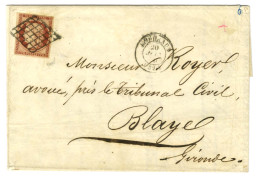 Monsieur Royer,
avoué, près le Tribunal Civil,
Blaye
Gironde.
20